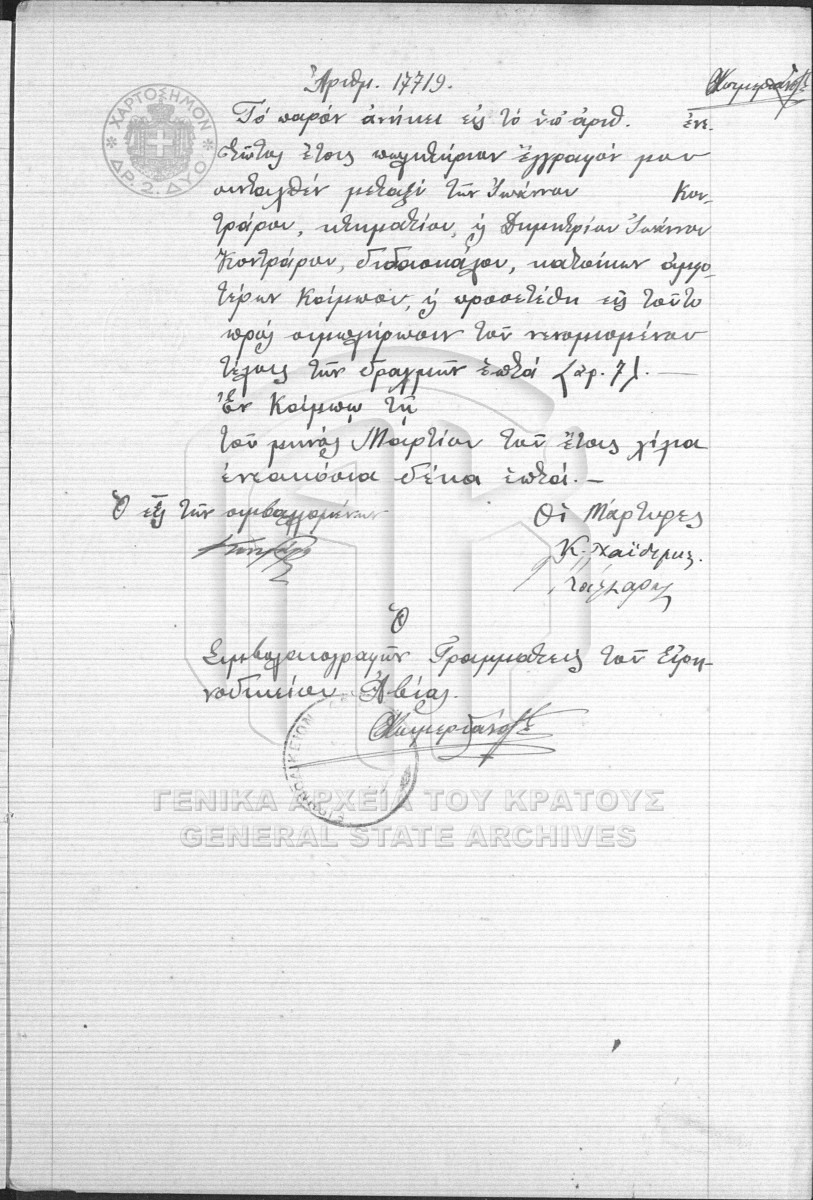 Ἀριθμ. 17719.
ΧΑΡΤΟΣΗΜΟΝ
ΔΡ. 2. ΔΥΟ
Τὸ παρὸν ἀνήκει εἰς τὸ ὑπ' ἀριθ. ἐνε-
στῶτος ἔτους πωλητήριον ἔγγραφόν μου
συνταχθὲν μεταξὺ τῶν Ἰωάννου Κον-
τράρου, κτηματίου, ἢ Δημητρίου Ἰωάννου
Κοντράρου, διδασκάλου, κατοίκων ἀμφο-
τέρων Κάμπου, ἢ προσετέθη εἰς τοῦτο
πρὸς συμπλήρωσιν τοῦ νενομισμένου
τέλους τῶν δραχμῶν ἑπτά (δρ. 7). —
Ἐν Κάμπῳ τῇ
τοῦ μηνὸς Μαρτίου τοῦ ἔτους χίλια
ἐννεακόσια δέκα ἑπτά. —
Ὁ ἐκ τῶν συμβαλλομένων
Οἱ Μάρτυρες
Ὁ
Συμβολαιογραφῶν Γραμματεὺς τοῦ Εἰρη-
νοδικείου Ἀβίας.
ΕΙΡΗΝΟΔΙΚΕΙΟΝ
ΓΕΝΙΚΑ ΑΡΧΕΙΑ ΤΟΥ ΚΡΑΤΟΥΣ
GENERAL STATE ARCHIVES